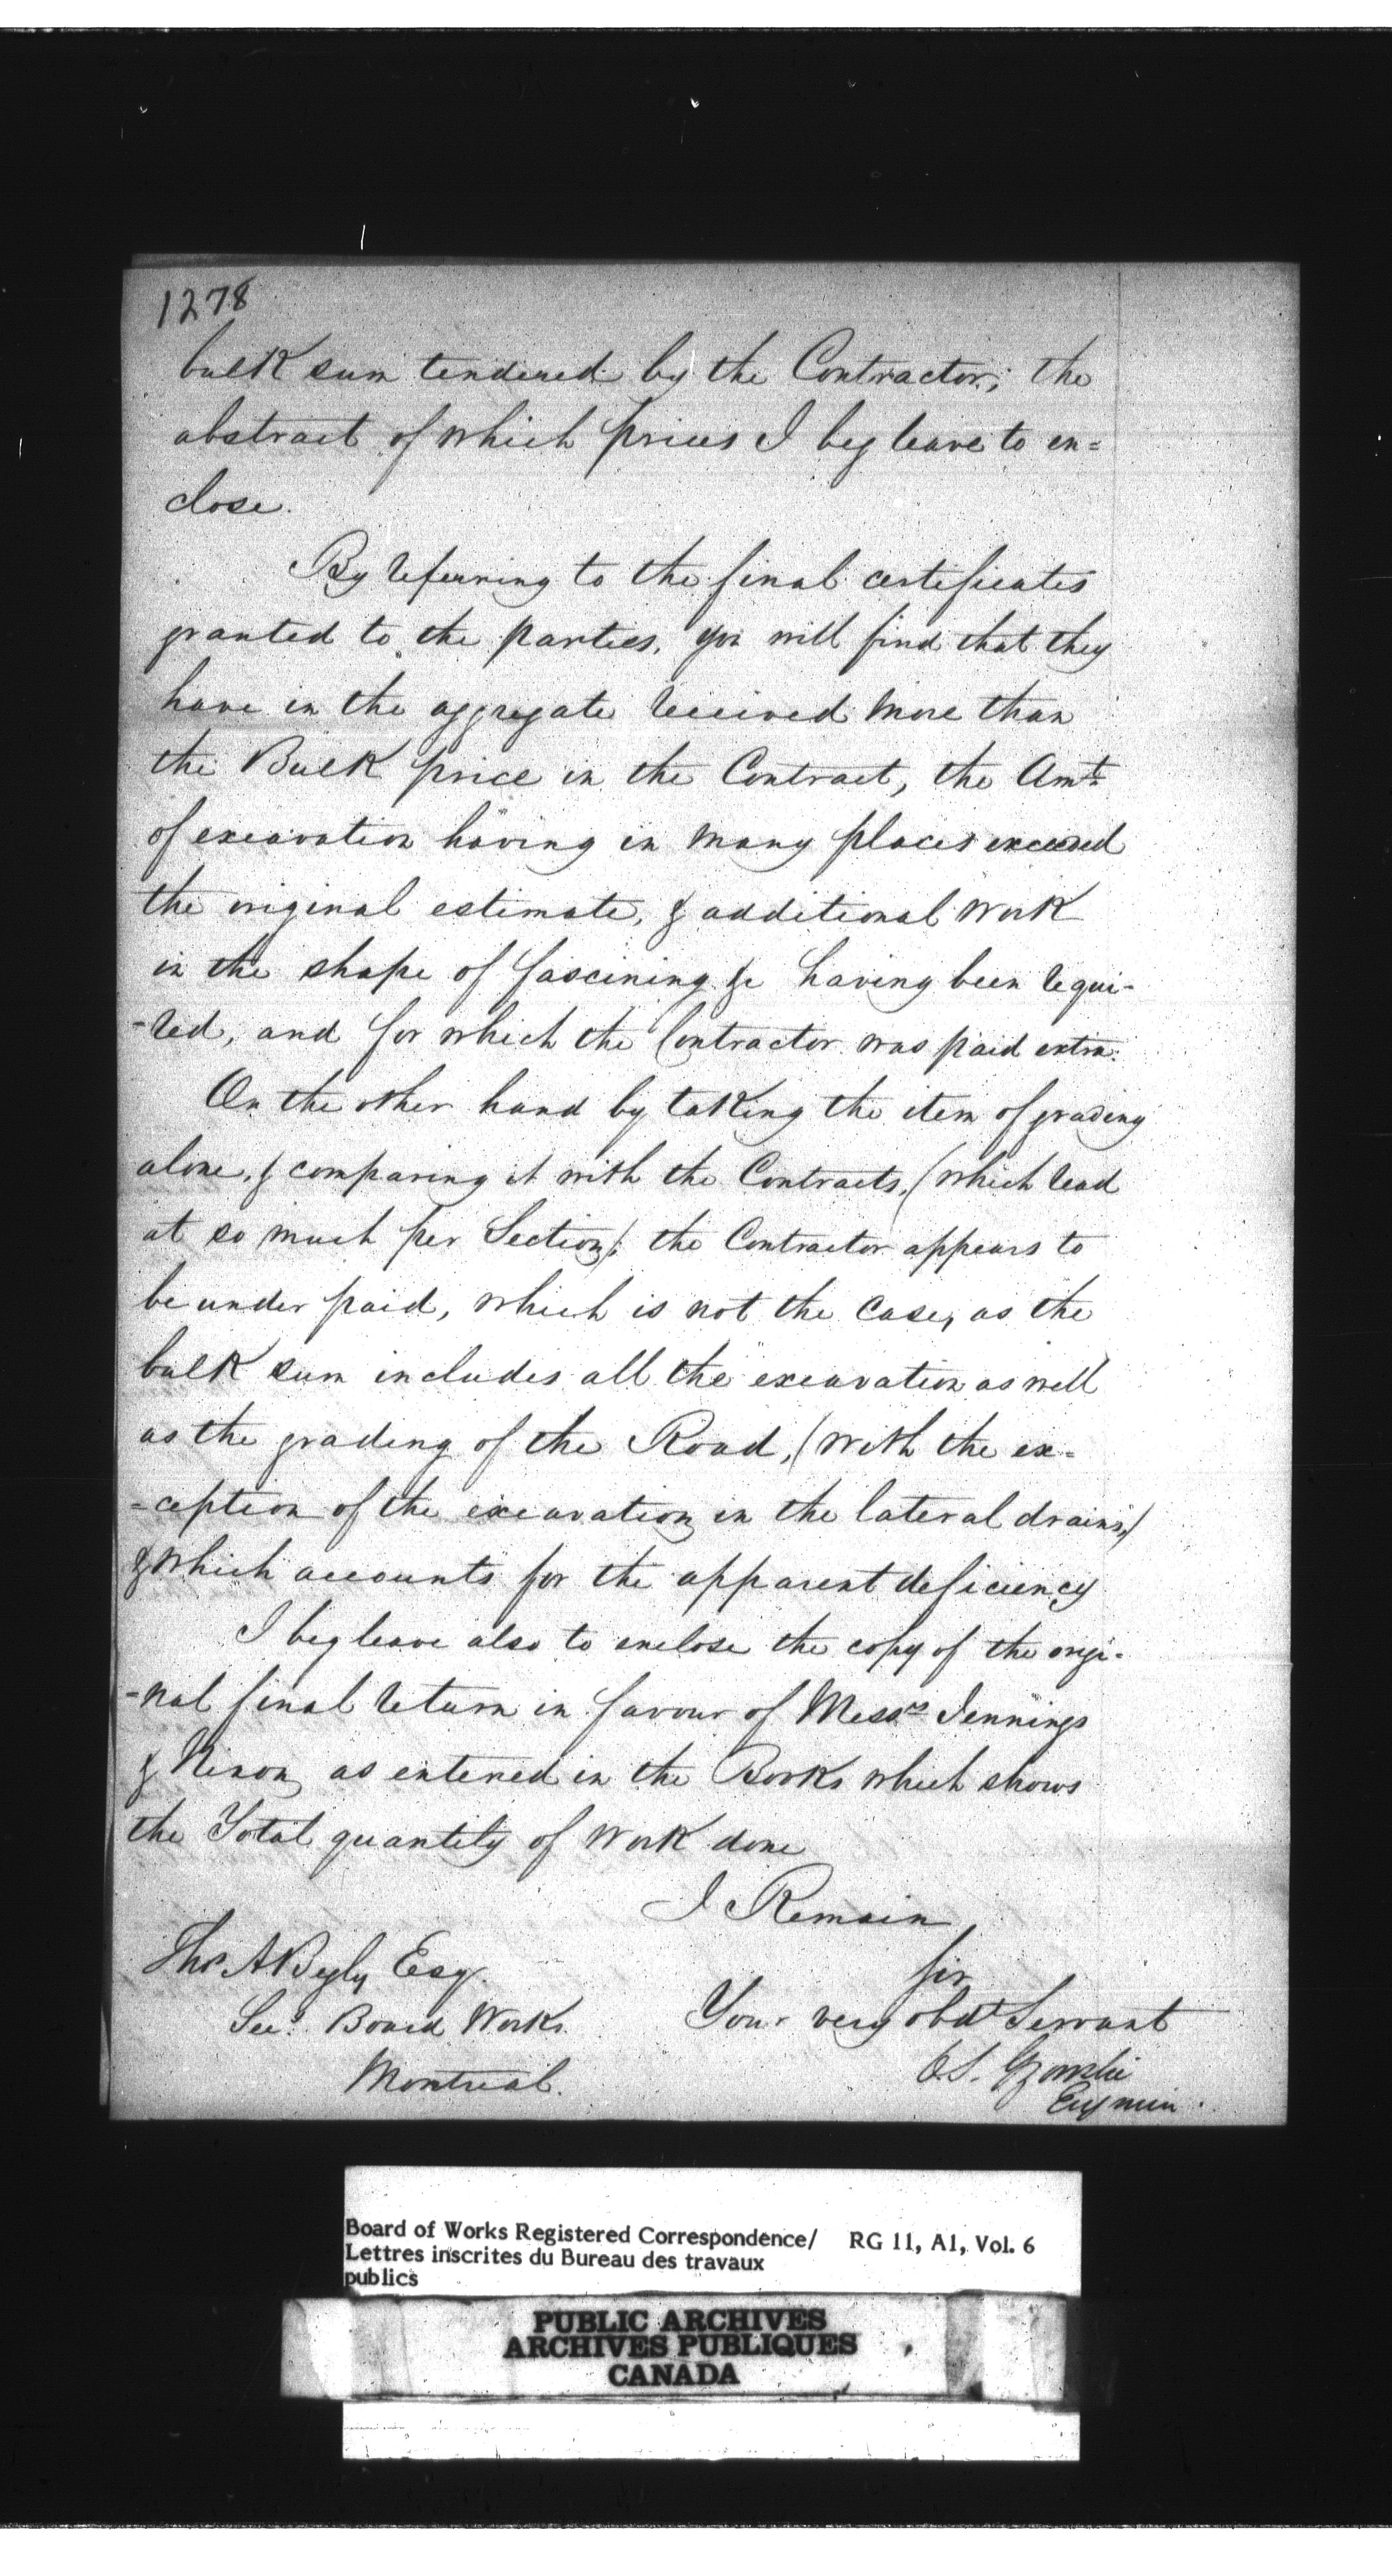 1278
bulk sum tendered by the Contractor; the
abstract of which prices I beg leave to en=
close.
By referring to the final certificates
granted to the parties, you will find that they
have in the aggregate received more than
the Bulk price in the Contract, the Amt.
of excavation having in many places exceeded
the original estimate, & additional work
in the shape of fascining &c having been requi-
-red, and for which the Contractor was paid extra.
On the other hand by taking the item of grading
alone, & comparing it with the Contracts, (which read
at so much per Section); the Contractor appears to
be under paid, which is not the case, as the
bulk sum includes all the excavation as well
as the grading of the Road, (with the ex-
=ception of the excavation in the lateral drains,)
& which accounts for the apparent deficiency
I beg leave also to enclose the copy of the origi-
-nal final return in favour of Messrs Jennings
& Nixon as entered in the Books which shows
the Total quantity of work done
I Remain
Sir
Thos A Begly Esqr.
Your very obdt Servant
Secy. Board Works
C.S. Gzowski
Montreal.
Board of Works Registered Correspondence/ RG 11, A1, Vol. 6
Lettres inscrites du Bureau des travaux
publics
PUBLIC ARCHIVES
ARCHIVES PUBLIQUES
CANADA